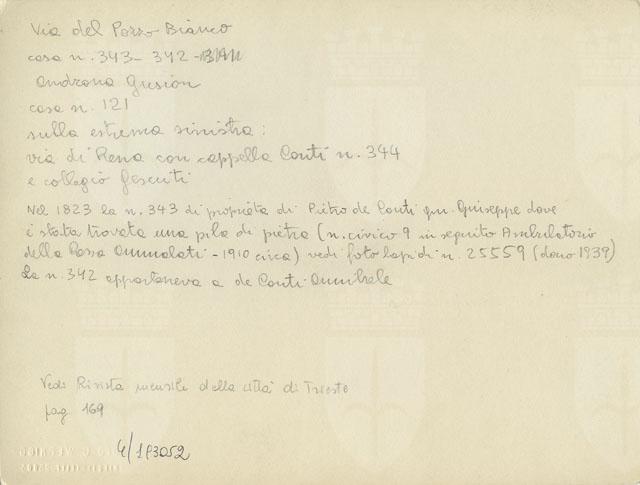 Via del Pozzo Bianco
casa n. 343 - 342 -
Androna Gusion
casa n. 121
sulla estrema sinistra:
via di Rena con cappella Conti n. 344
e collegio Gesuiti
Nel 1823 la n. 343 di proprietà di Pietro de Conti qm. Giuseppe dove
è stata trovata una pila di pietra (n. civico 9 in seguito Ambulatorio
della Cassa Ammalati - 1910 circa) vedi foto lapidi n. 25559 (dono 1939)
La n. 342 apparteneva a de Conti Annibale
Vedi Rivista mensile della città di Trieste
pag 169
4/193052